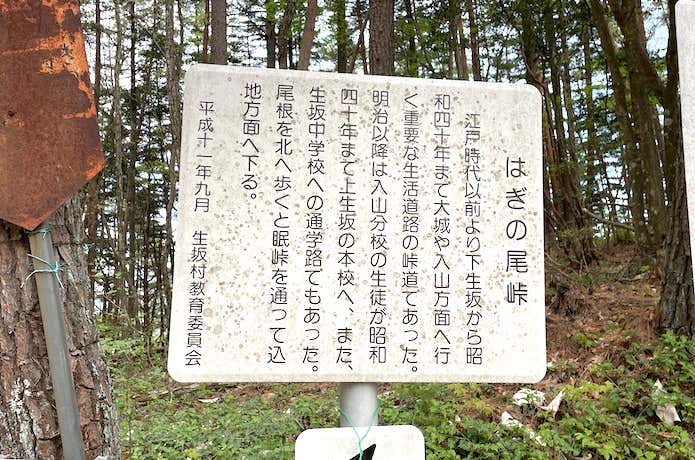 はぎの尾峠
江戸時代以前より下生坂から昭
和四十年まで大城や入山方面へ行
く重要な生活道路の峠道であった。
明治以降は入山分校の生徒が昭和
四十年まで上生坂の本校へ、また、
生坂中学校への通学路でもあった。
尾根を北へ歩くと眠峠を通って込
地方面へ下る。
平成十一年九月 生坂村教育委員会